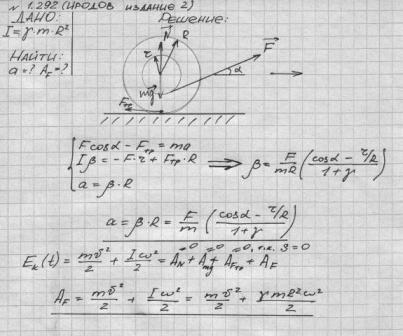 N 1.292 (ИРОДОВ издание 2)
ДАНО:
I=γ·m·R²
НАЙТИ:
a=? A_F=?
Решение:
N R
τ
F
α
mg
Fтр
{ Fcosα - Fтр = ma
Iβ = -F·τ + Fтр·R
a = β·R
⇒ β = F/mR ((cosα - τ/R)/(1+γ))
a = β·R = F/m ((cosα - τ/R)/(1+γ))
E_k(t) = mυ²/2 + Iω²/2 = A_N + A_mg + A_Fтр + A_F
=0 =0 =0, т.к. S=0
A_F = mυ²/2 + Iω²/2 = mυ²/2 + γmR²ω²/2